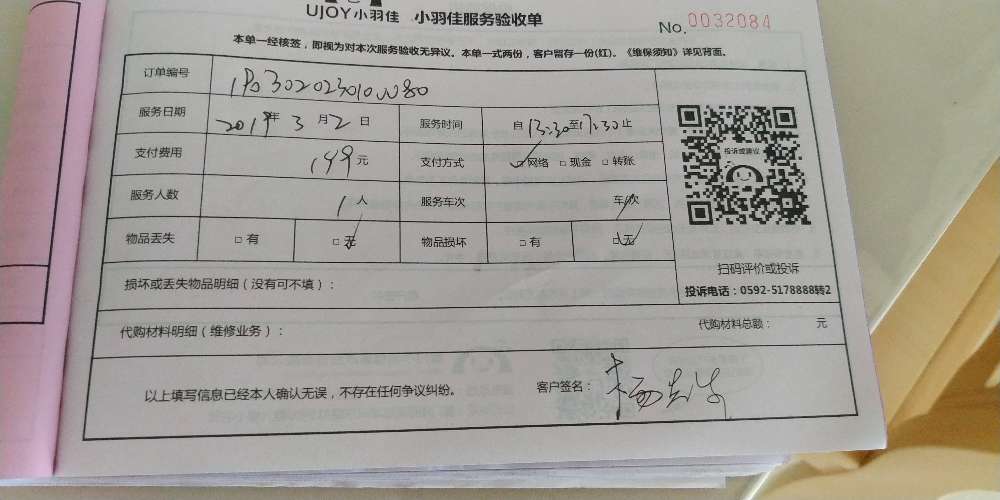 UJOY小羽佳 小羽佳服务验收单
No. 0032084
本单一经核签，即视为对本次服务验收无异议。本单一式两份，客户留存一份(红)。《维保须知》详见背面。
订单编号
服务日期 2019年 3 月 2 日 服务时间 自 13:30 至 17:30 止
支付费用 149 元 支付方式 ☑网络 □现金 □转账
投诉或建议
服务人数 1 人 服务车次 车/次
物品丢失 □有 ☑无 物品损坏 □有 ☑无
扫码评价或投诉
损坏或丢失物品明细（没有可不填）：
投诉电话：0592-5178888转2
代购材料明细（维修业务）： 代购材料总额： 元
以上填写信息已经本人确认无误，不存在任何争议纠纷。 客户签名：